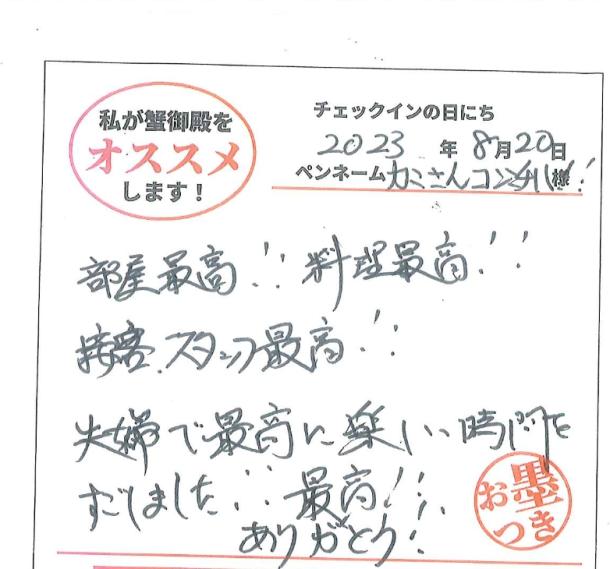 私が蟹御殿を
オススメ
します！
チェックインの日にち
2023年8月20日
ペンネーム カミさんコンチハ!! 様
部屋最高!! 料理最高!!
接客.スタッフ最高!!
夫婦で最高に楽しい時間を
すごしました!! 最高!!
ありがとう!
お墨
つき